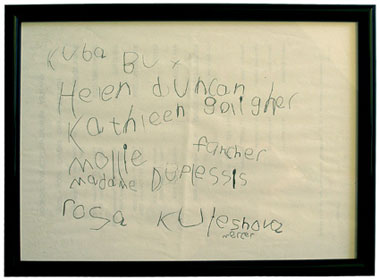 Kuba Bux
Helen duncan
Kathleen goligher
mollie fancher
madame Duplessis
rosa Kuleshova
mercer